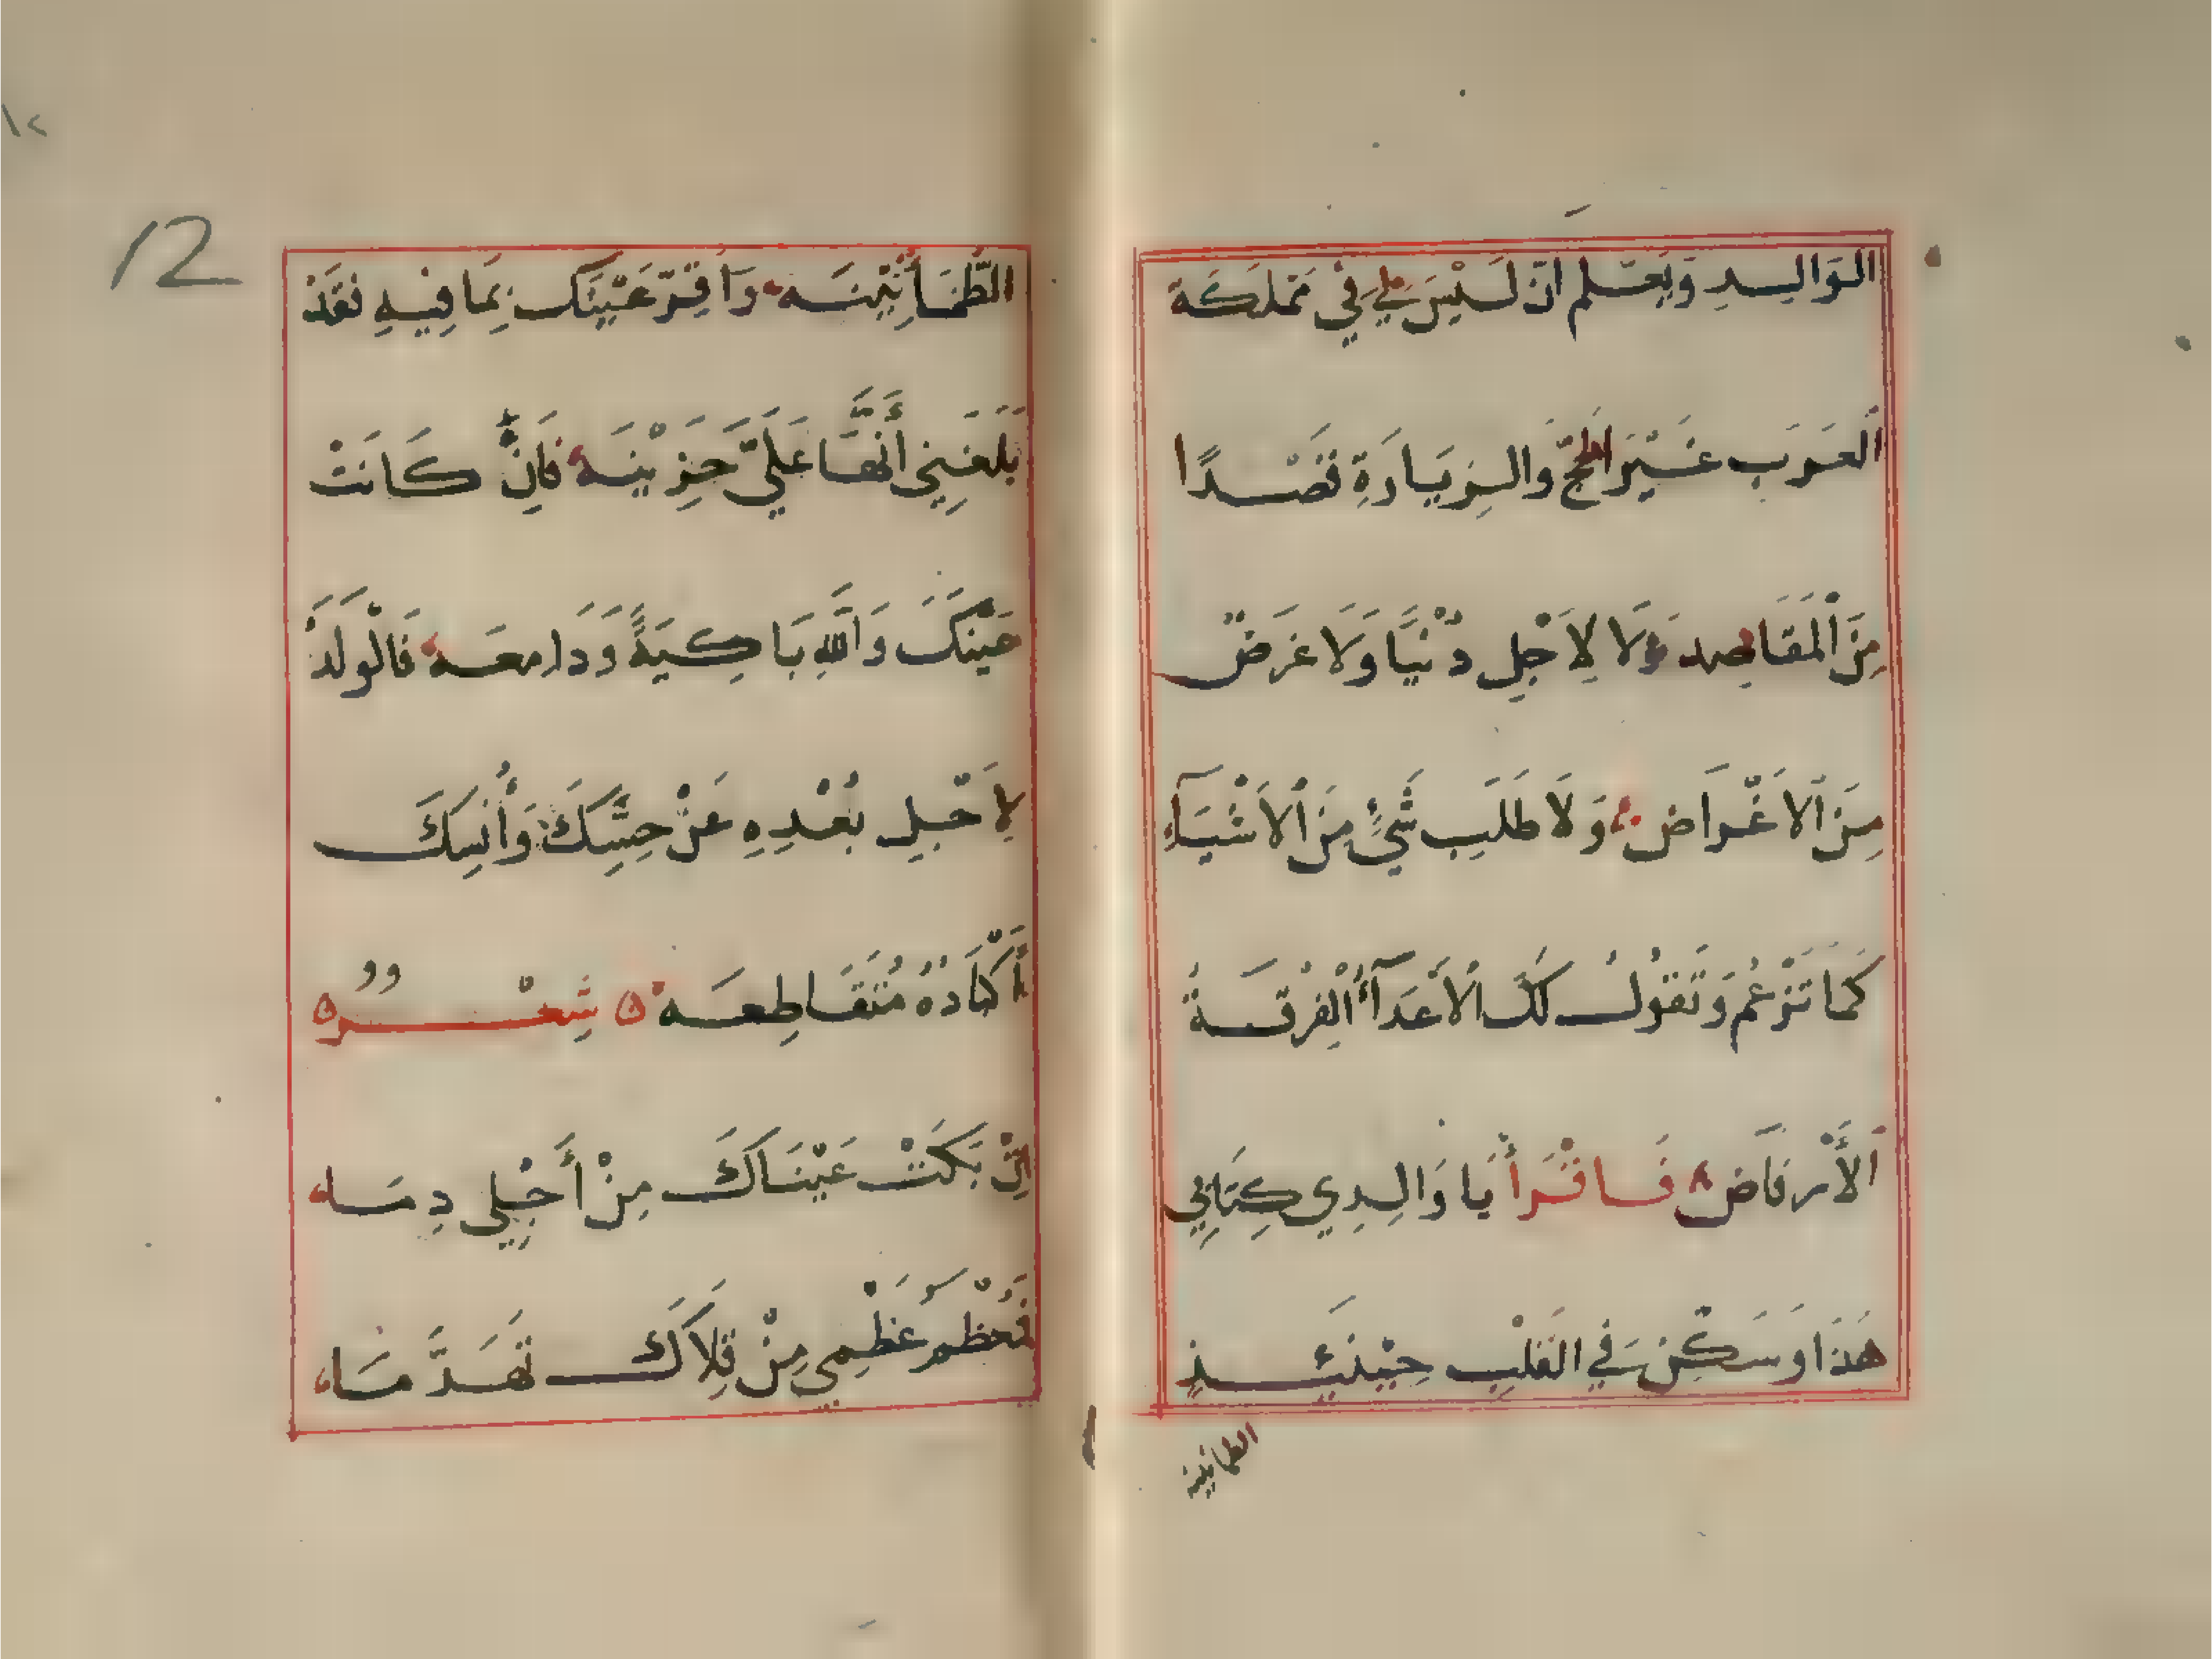 الوَالِدِ وَيَعْلَم أَنّ لَيْسَ لِي فِيْ مَمْلَكَة
العَرَب غَيْرَ الحَجّ وَالزِيَارَةِ قَصْدًا
مِنَ اْلمَقَاصِد وَلَا لِاَجْلِ دُنْيَا وَلَا غَرَضٌ
مِنَ اْلاَغْرَاض وَلَا طَلَب شَيْءٍ مِنَ اْلاَشْيَآءِ
كَمَا تَزْعُم وَتَقُوْلُ لَكَ الْأَعْدَآءُ الْفِرْقَةُ
اَلأَرْفَاض فَاقْرَأْ يَا وَالِدِي كِتَابِي
هَذَا وَسَكِّنْ فِي القَلْبِ حِيْنَئِذٍ
الطمانينة
١٢
12
الطُّمَأْنِيْنَه وَاَقِرّ عَيْنَك بِمَا فِيْهِ فَقَدْ
بَلَغَنِي أَنَّهَا عَلَيَّ حَزِيْنَه فَاِنْ كَانَتْ
عَيْنكَ وَاللهِ بَاكِيَةً وَدَامعَه فَالْوَلَدُ
لِاَجْلِ بُعْدِهِ عَنْ حِسِّكَ وَأُنسِكَ
أَكْبَادُهُ مُتَقَاطِعَه ۞ شِعْـر ۞
اِنْ بَكَتْ عَيْنَاكَ مِنْ أَجْلِي دِمَـا
فَعُظْمُ عَظْمِي مِنْ قِلَاكَ تَهَدَّمَـا